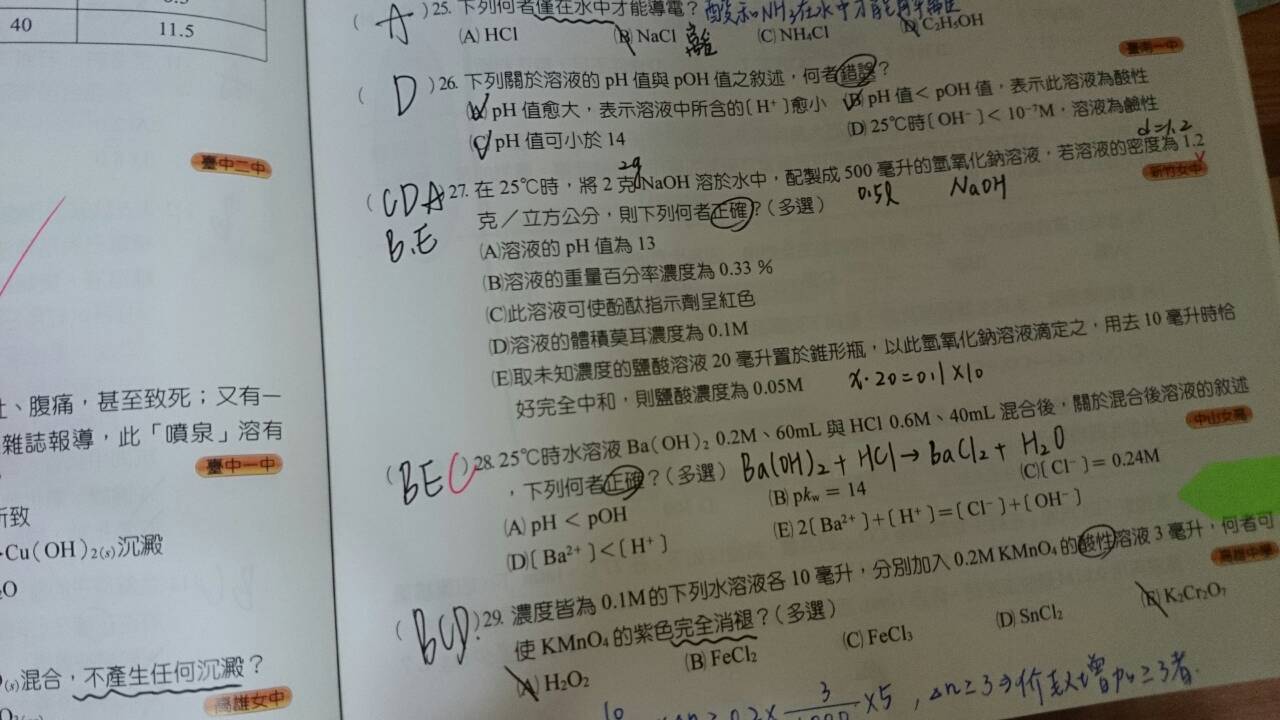 40
11.5
臺中二中
、腹痛，甚至致死；又有一
雜誌報導，此「噴泉」溶有
臺中一中
所致
Cu(OH)₂₍s₎沉澱
混合，不產生任何沉澱？
高雄女中
( A )25. 下列何者僅在水中才能導電？
(A) HCl (B) NaCl (C) NH₄Cl (D) C₂H₅OH
臺南一中
( D )26. 下列關於溶液的 pH 值與 pOH 值之敘述，何者錯誤？
(A) pH 值愈大，表示溶液中所含的〔H⁺〕愈小 (B) pH 值 < pOH 值，表示此溶液為酸性
(C) pH 值可小於 14 (D) 25℃時〔OH⁻〕< 10⁻⁷M，溶液為鹼性
2g d=1.2
( CDA )27. 在 25℃時，將 2 克 NaOH 溶於水中，配製成 500 毫升的氫氧化鈉溶液，若溶液的密度為 1.2
B.E 克／立方公分，則下列何者正確？(多選) 0.5l NaOH 新竹女中
(A)溶液的 pH 值為 13
(B)溶液的重量百分率濃度為 0.33 %
(C)此溶液可使酚酞指示劑呈紅色
(D)溶液的體積莫耳濃度為 0.1M
(E)取未知濃度的鹽酸溶液 20 毫升置於錐形瓶，以此氫氧化鈉溶液滴定之，用去 10 毫升時恰
好完全中和，則鹽酸濃度為 0.05M x·20=0.1×10
( BEC )28. 25℃時水溶液 Ba(OH)₂ 0.2M、60mL 與 HCl 0.6M、40mL 混合後，關於混合後溶液的敘述
，下列何者正確？(多選) Ba(OH)₂ + HCl → BaCl₂ + H₂O 中山女高
(A) pH < pOH (B) pkw = 14 (C)〔Cl⁻〕= 0.24M
(D)〔Ba²⁺〕<〔H⁺〕 (E) 2〔Ba²⁺〕+〔H⁺〕=〔Cl⁻〕+〔OH⁻〕
( BCD )29. 濃度皆為 0.1M 的下列水溶液各 10 毫升，分別加入 0.2M KMnO₄ 的酸性溶液 3 毫升，何者可
使 KMnO₄ 的紫色完全消褪？(多選) 高雄中學
(A) H₂O₂ (B) FeCl₂ (C) FeCl₃ (D) SnCl₂ (E) K₂Cr₂O₇